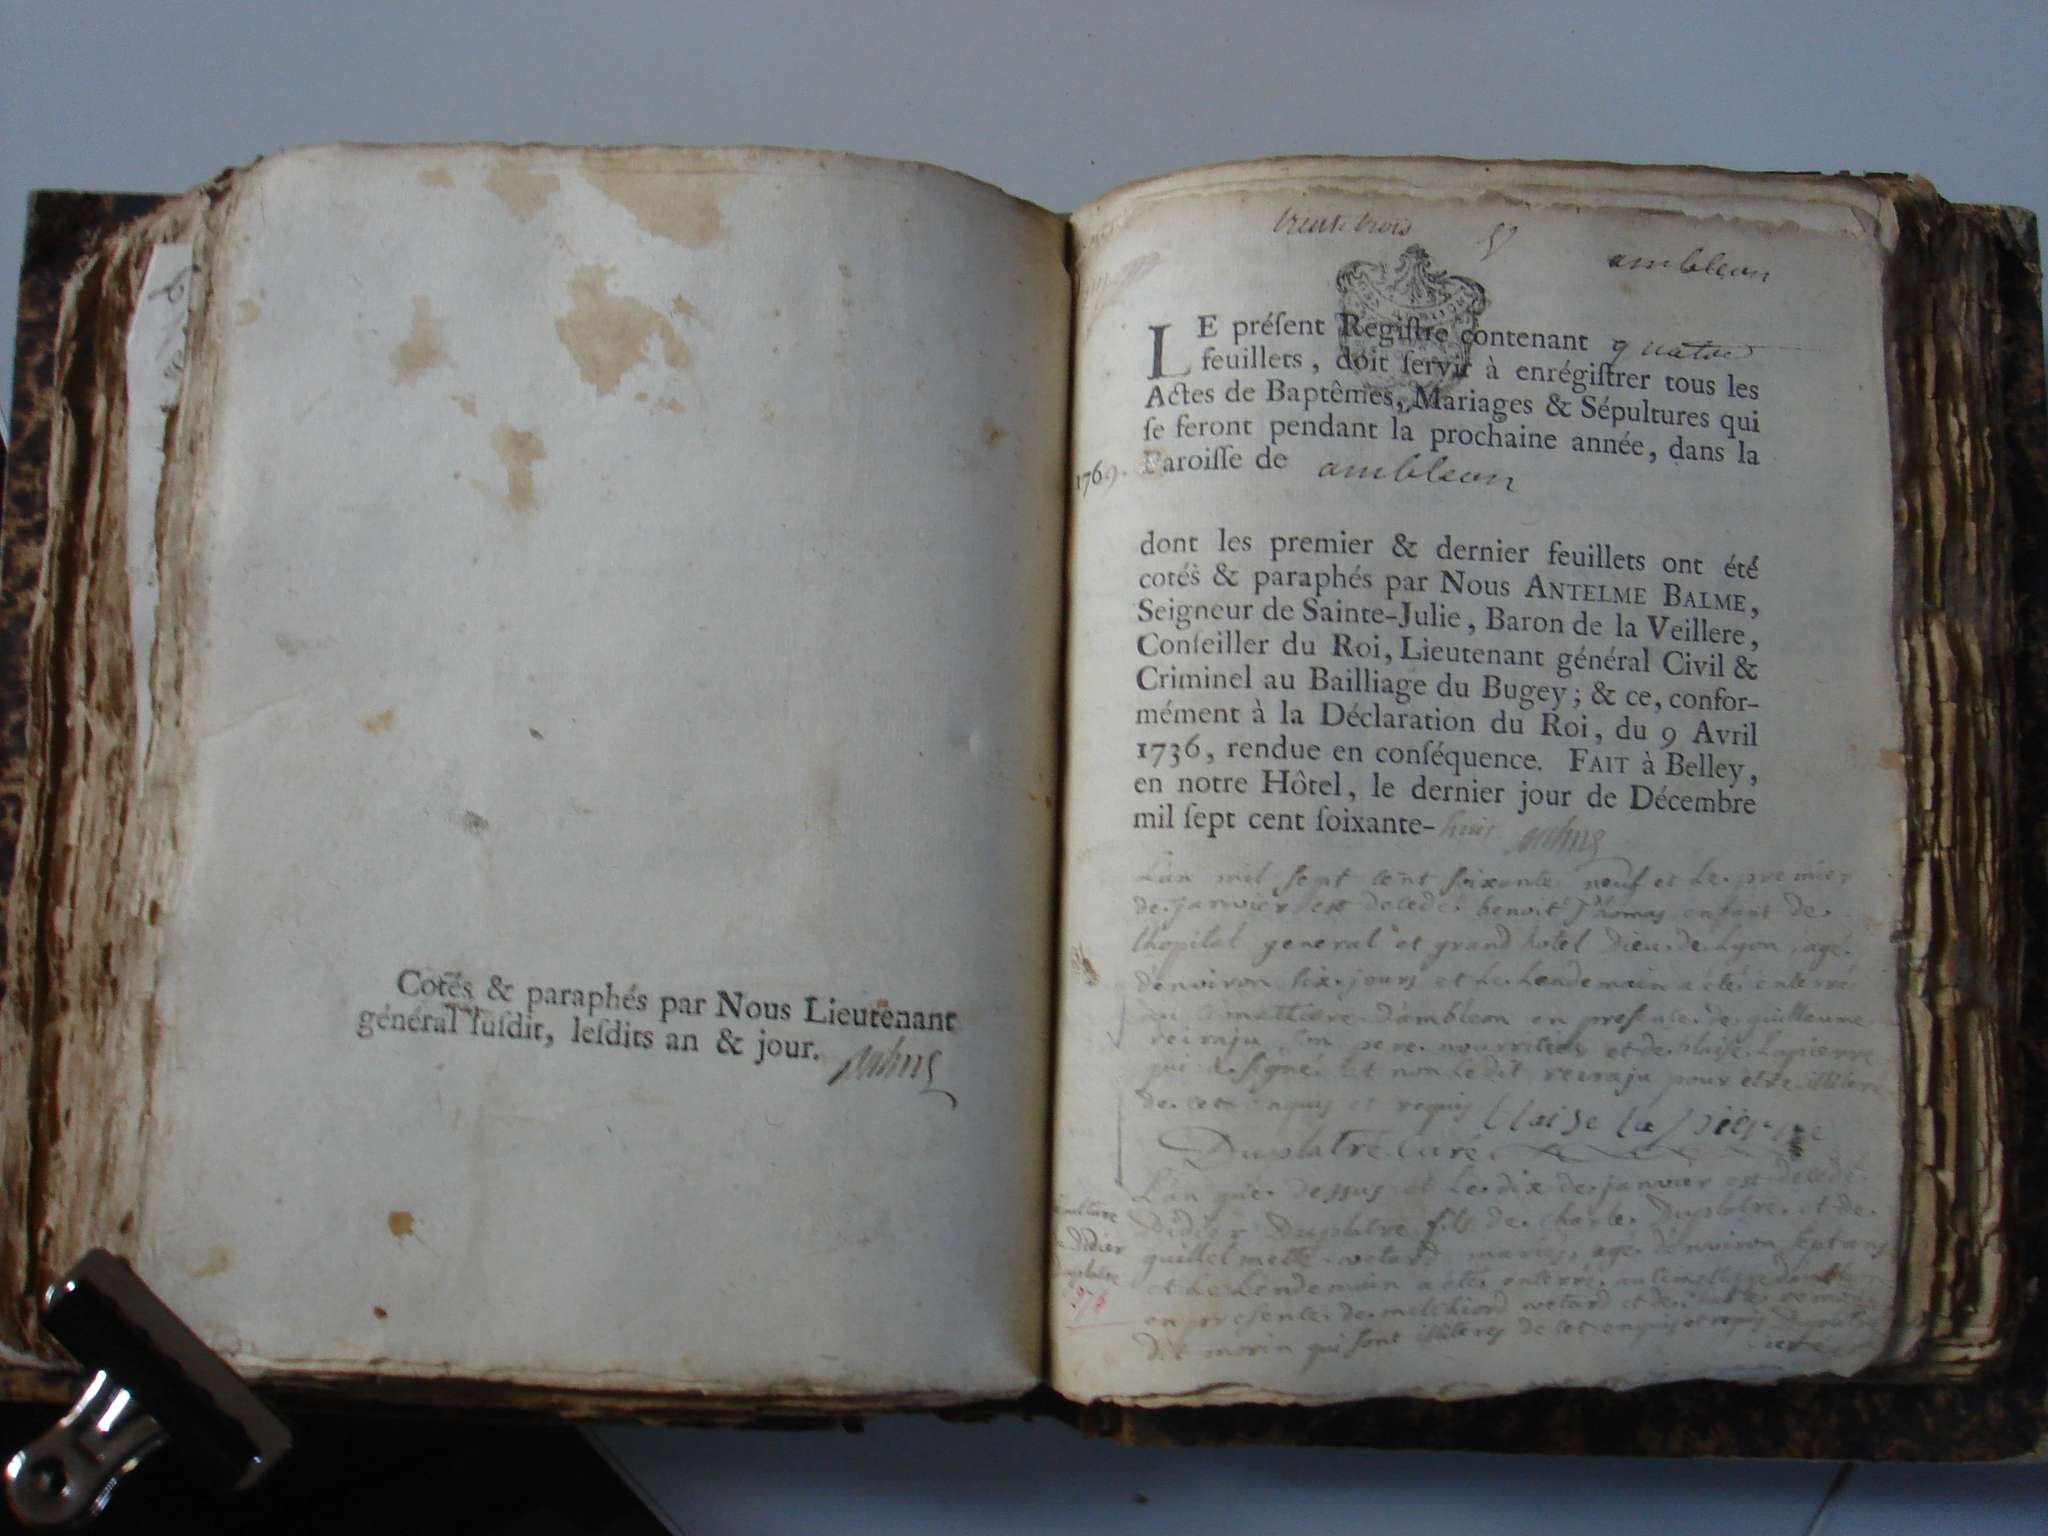 Cotés & paraphés par Nous Lieutenant
général ſuſdit, leſdits an & jour.
trente trois
ambleon
LE préſent Regiſtre contenant quatre
feuillets, doit ſervir à enrégiſtrer tous les
Actes de Baptêmes, Mariages & Sépultures qui
ſe feront pendant la prochaine année, dans la
1769. Paroiſſe de ambleon
dont les premier & dernier feuillets ont été
cotés & paraphés par Nous ANTELME BALME,
Seigneur de Sainte-Julie, Baron de la Veillere,
Conſeiller du Roi, Lieutenant général Civil &
Criminel au Bailliage du Bugey; & ce, confor-
mément à la Déclaration du Roi, du 9 Avril
1736, rendue en conſéquence. FAIT à Belley,
en notre Hôtel, le dernier jour de Décembre
mil ſept cent ſoixante-huit
L'an mil sept cent soixante neuf et le premier
de janvier est decedé benoit Thomas enfant de
lhopital general et grand hotel Dieu de Lyon, agé
d'environ six jours et le lendemain a été enterré
au cimettiere d'ambleon en presence de guillaume
reiraju son pere nourricier et de blaise lapierre
qui a signé et non ledit reiraju pour etre illiteré
de ce enquis et requis blaise la pierre
Duplatre curé
L'an que dessus et le dix de janvier est decedé
Didier Duplatre fils de charle Duplatre et de
guillelmette wetard mariés, agé d'environ sept ans
et le lendemain a été enterré au cimettiere
en presence de melchiord wetard et de
dit morin qui sont illiteres de ce enquis et requis Duplatre
curé
sepulture
de Didier
Duplatre